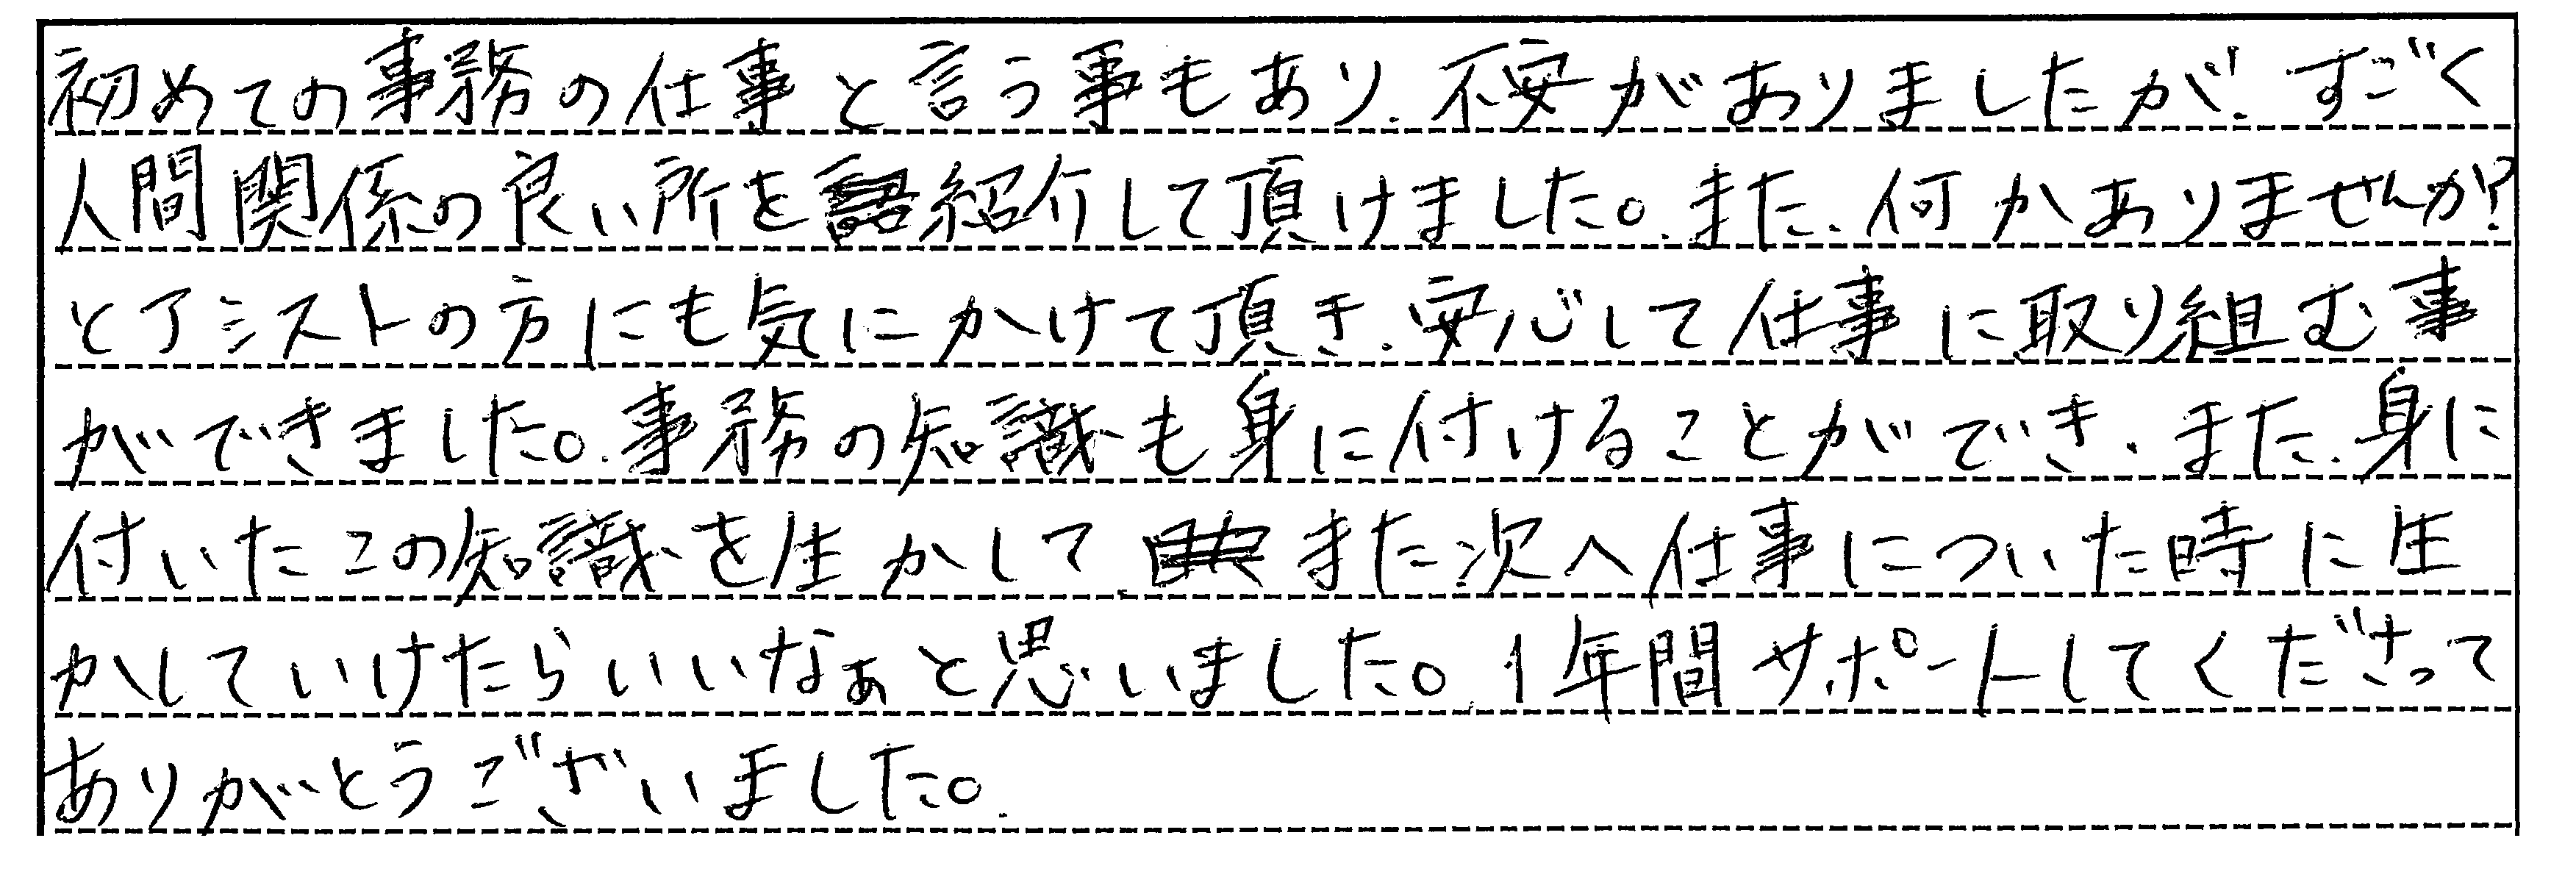 初めての事務の仕事と言う事もあり、不安がありましたが、すごく
人間関係の良い所を紹介して頂けました。また、何かありませんか?
とアシストの方にも気にかけて頂き、安心して仕事に取り組む事
ができました。事務の知識も身に付けることができ、また、身に
付いたこの知識を生かして、また次へ仕事についた時に生
かしていけたらいいなぁと思いました。1年間サポートしてくださって
ありがとうございました。